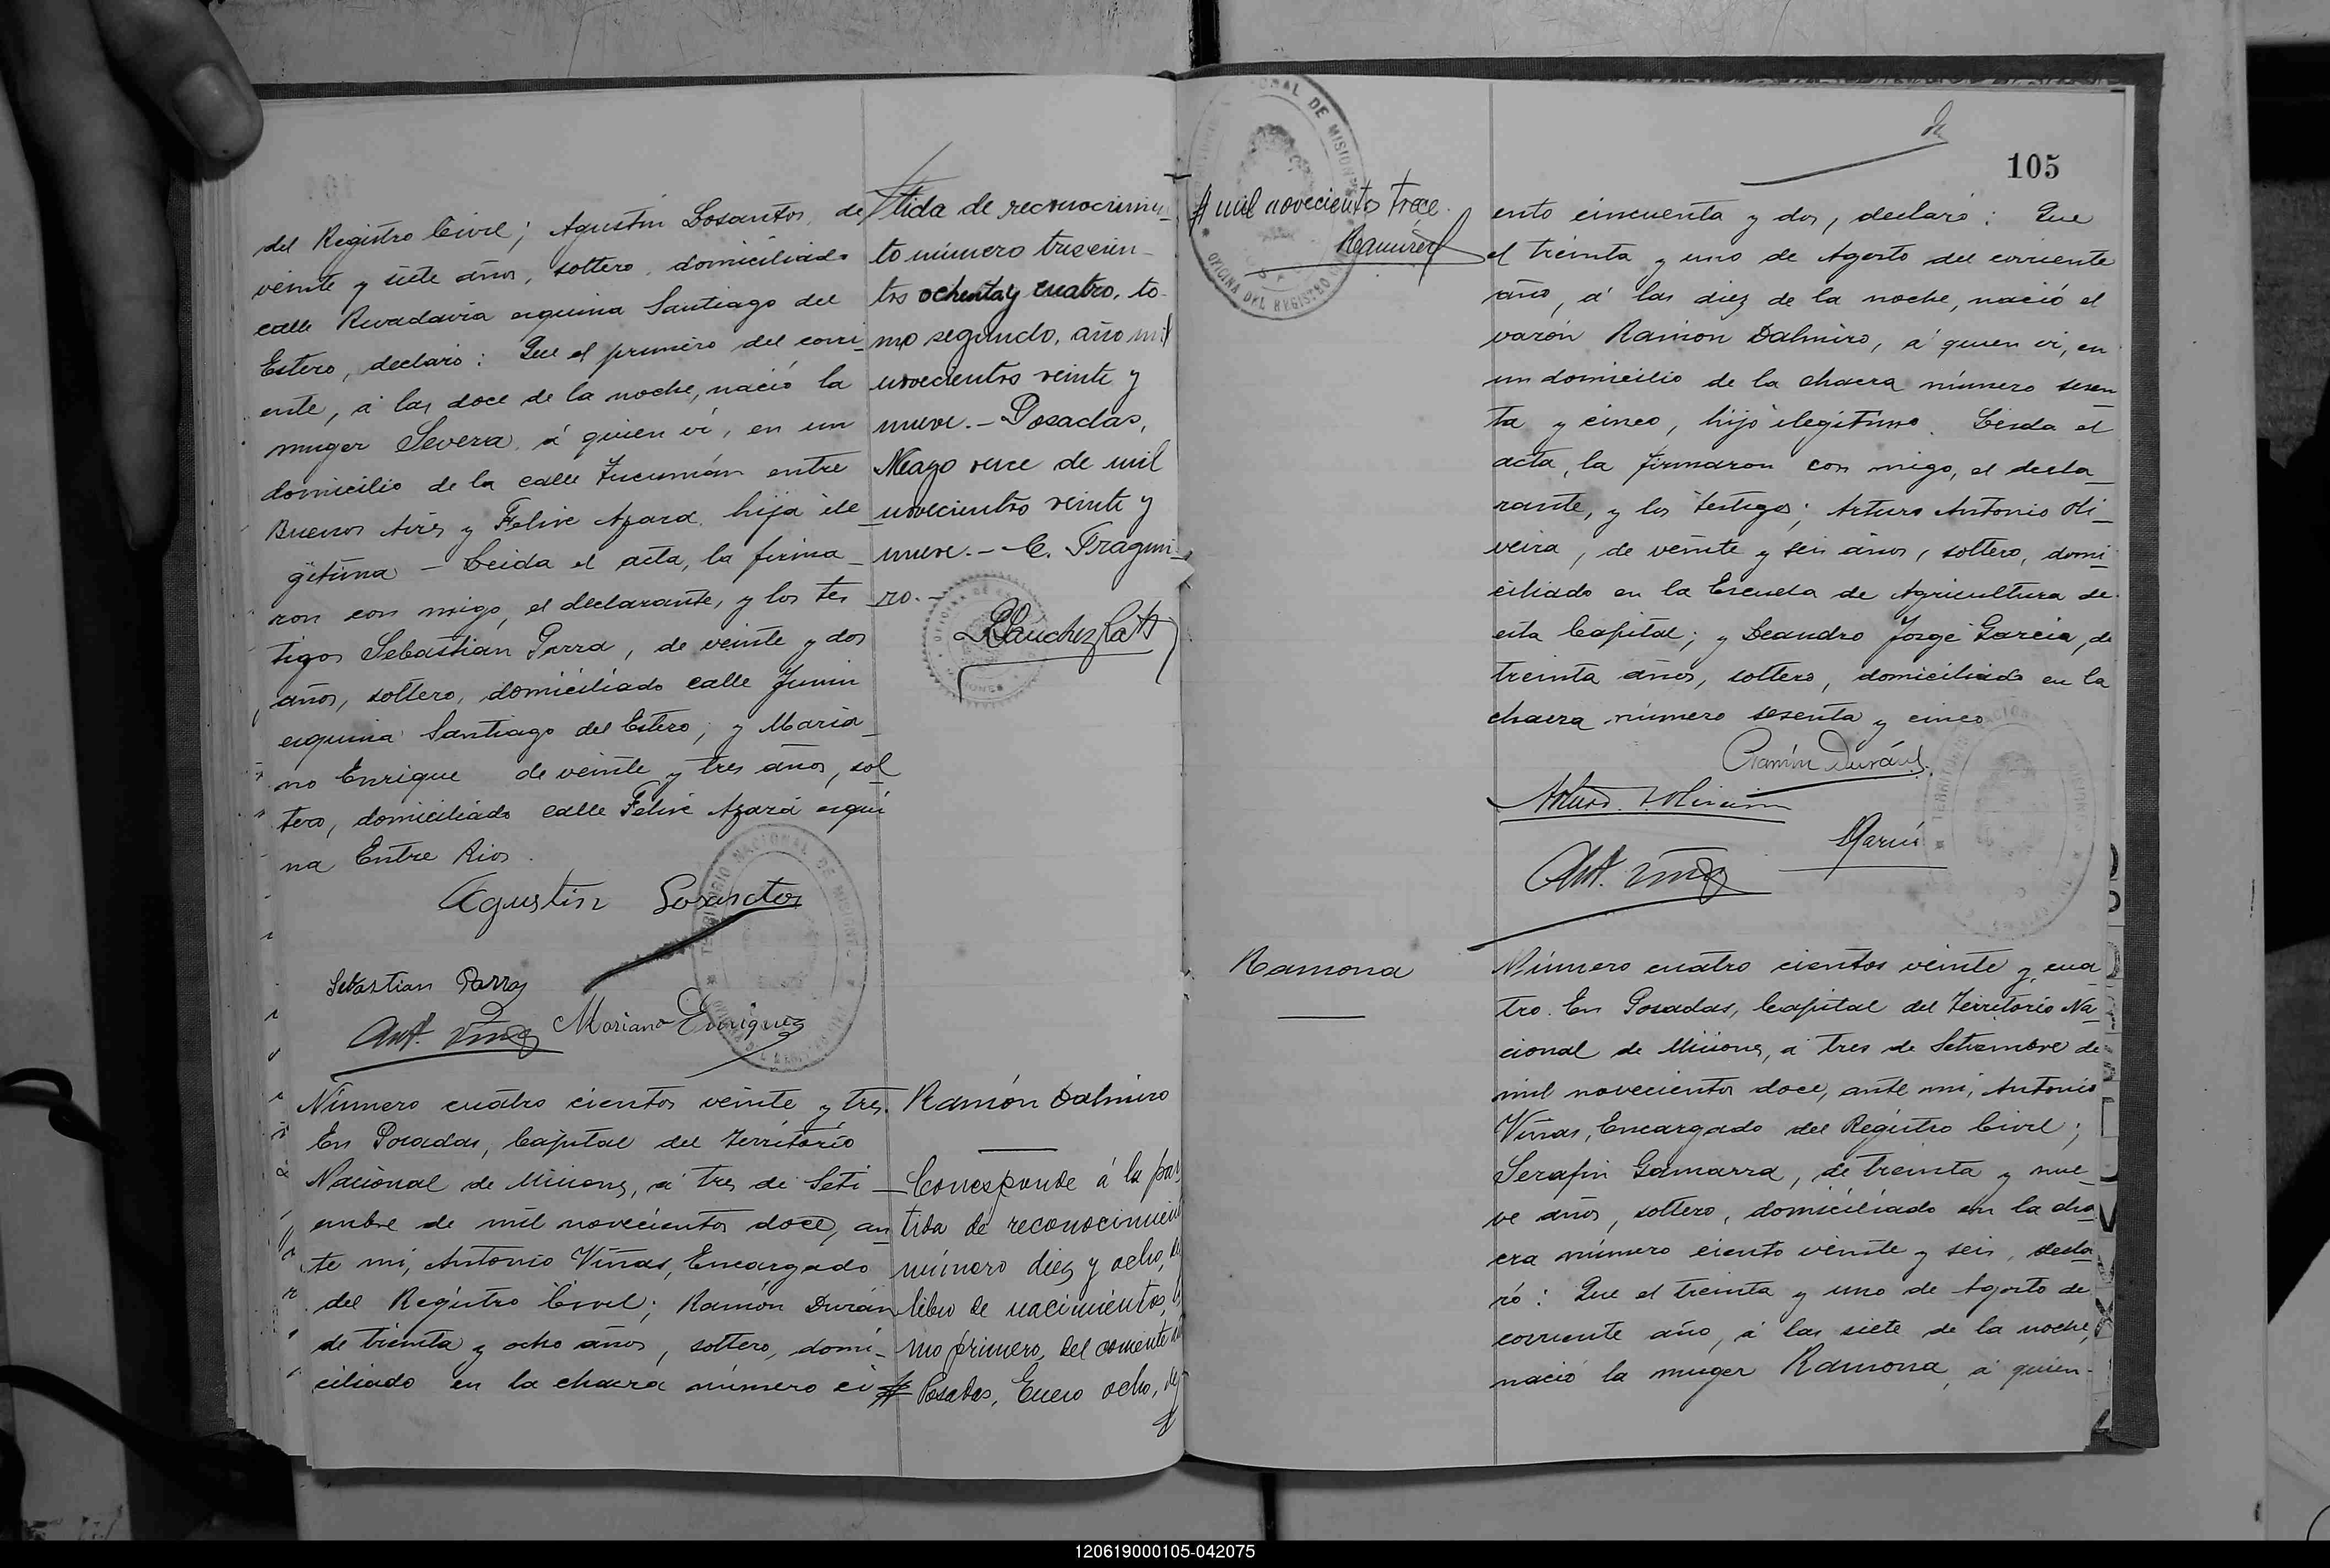 del Registro Civil; Agustin Losantos, de
veinte y siete años, soltero, domiciliado
calle Rivadavia esquina Santiago del
Estero, declaró: Que el primero del corri-
ente, á las doce de la noche, nació la
muger Severa, á quien ví, en un
domicilio de la calle Tucumán entre
Buenos Aires y Felix Azara, hija ile
gitima – Leida el acta, la firma-
ron con migo, el declarante, y los tes
tigos Sebastián Parra, de veinte y dos
años, soltero, domiciliado calle Junin
esquina Santiago del Estero; y Maria-
no Enrique de veinte y tres años, sol
tero, domiciliado calle Felix Azara esqui
na Entre Rios.
Agustin Losantos
Sebastian Parra
Ant. Viñas Mariano Enriquez
Número cuatro cientos veinte y tres.
En Posadas, Capital del Territorio
Nacional de Misiones, á tres de Seti-
embre de mil novecientos doce, an
te mi, Antonio Viñas, Encargado
del Registro Civil; Ramón Durán
de treinta y ocho años, soltero, domi-
ciliado en la chacra número ci
tida de reconocimien-
to número trescien-
tos ochenta y cuatro, to-
mo segundo, año mil
novecientos veinte y
nueve. – Posadas,
Mayo once de mil
novecientos veinte y
nueve. – C. Fragui-
ro. –
Ramón Dalmiro
Corresponde á la par
tida de reconocimient
número diez y ocho, de
libro de nacimientos, to
mo primero, del corriente
# Posadas, Enero ocho, de
#
# mil novecientos trece.
Ramirez
TERRITORIO NACIONAL DE MISIONES
OFICINA DEL REGISTRO
Ramona
105
ento cincuenta y dos, declaró: Que
el treinta y uno de Agosto del corriente
año, á las diez de la noche, nació el
varón Ramon Dalmiro, á quien ví, en
un domicilio de la chacra número sesen
ta y cinco, hijo ilegítimo. Leida el
acta, la firmaron con migo, el decla-
rante, y los testigos; Arturo Antonio Oli-
veira, de veinte y seis años, soltero, domi-
ciliado en la Escuela de Agricultura de
esta Capital; y Leandro Jorge Garcia, de
treinta años, soltero, domiciliado en la
chacra número sesenta y cinco
Ramón Durán
Arturo Oliveira
Ant. Viñas
Número cuatro cientos veinte y cua
tro. En Posadas, Capital del Territorio Na-
cional de Misiones, á tres de Setiembre de
mil novecientos doce, ante mi, Antonio
Viñas, Encargado del Registro Civil;
Serafin Gamarra, de treinta y nue-
ve años, soltero, domiciliado en la cha
cra número ciento veinte y seis, decla
ró: Que el treinta y uno de Agosto de
corriente año, á las siete de la noche,
nació la muger Ramona, á quien-
120619000105-042075